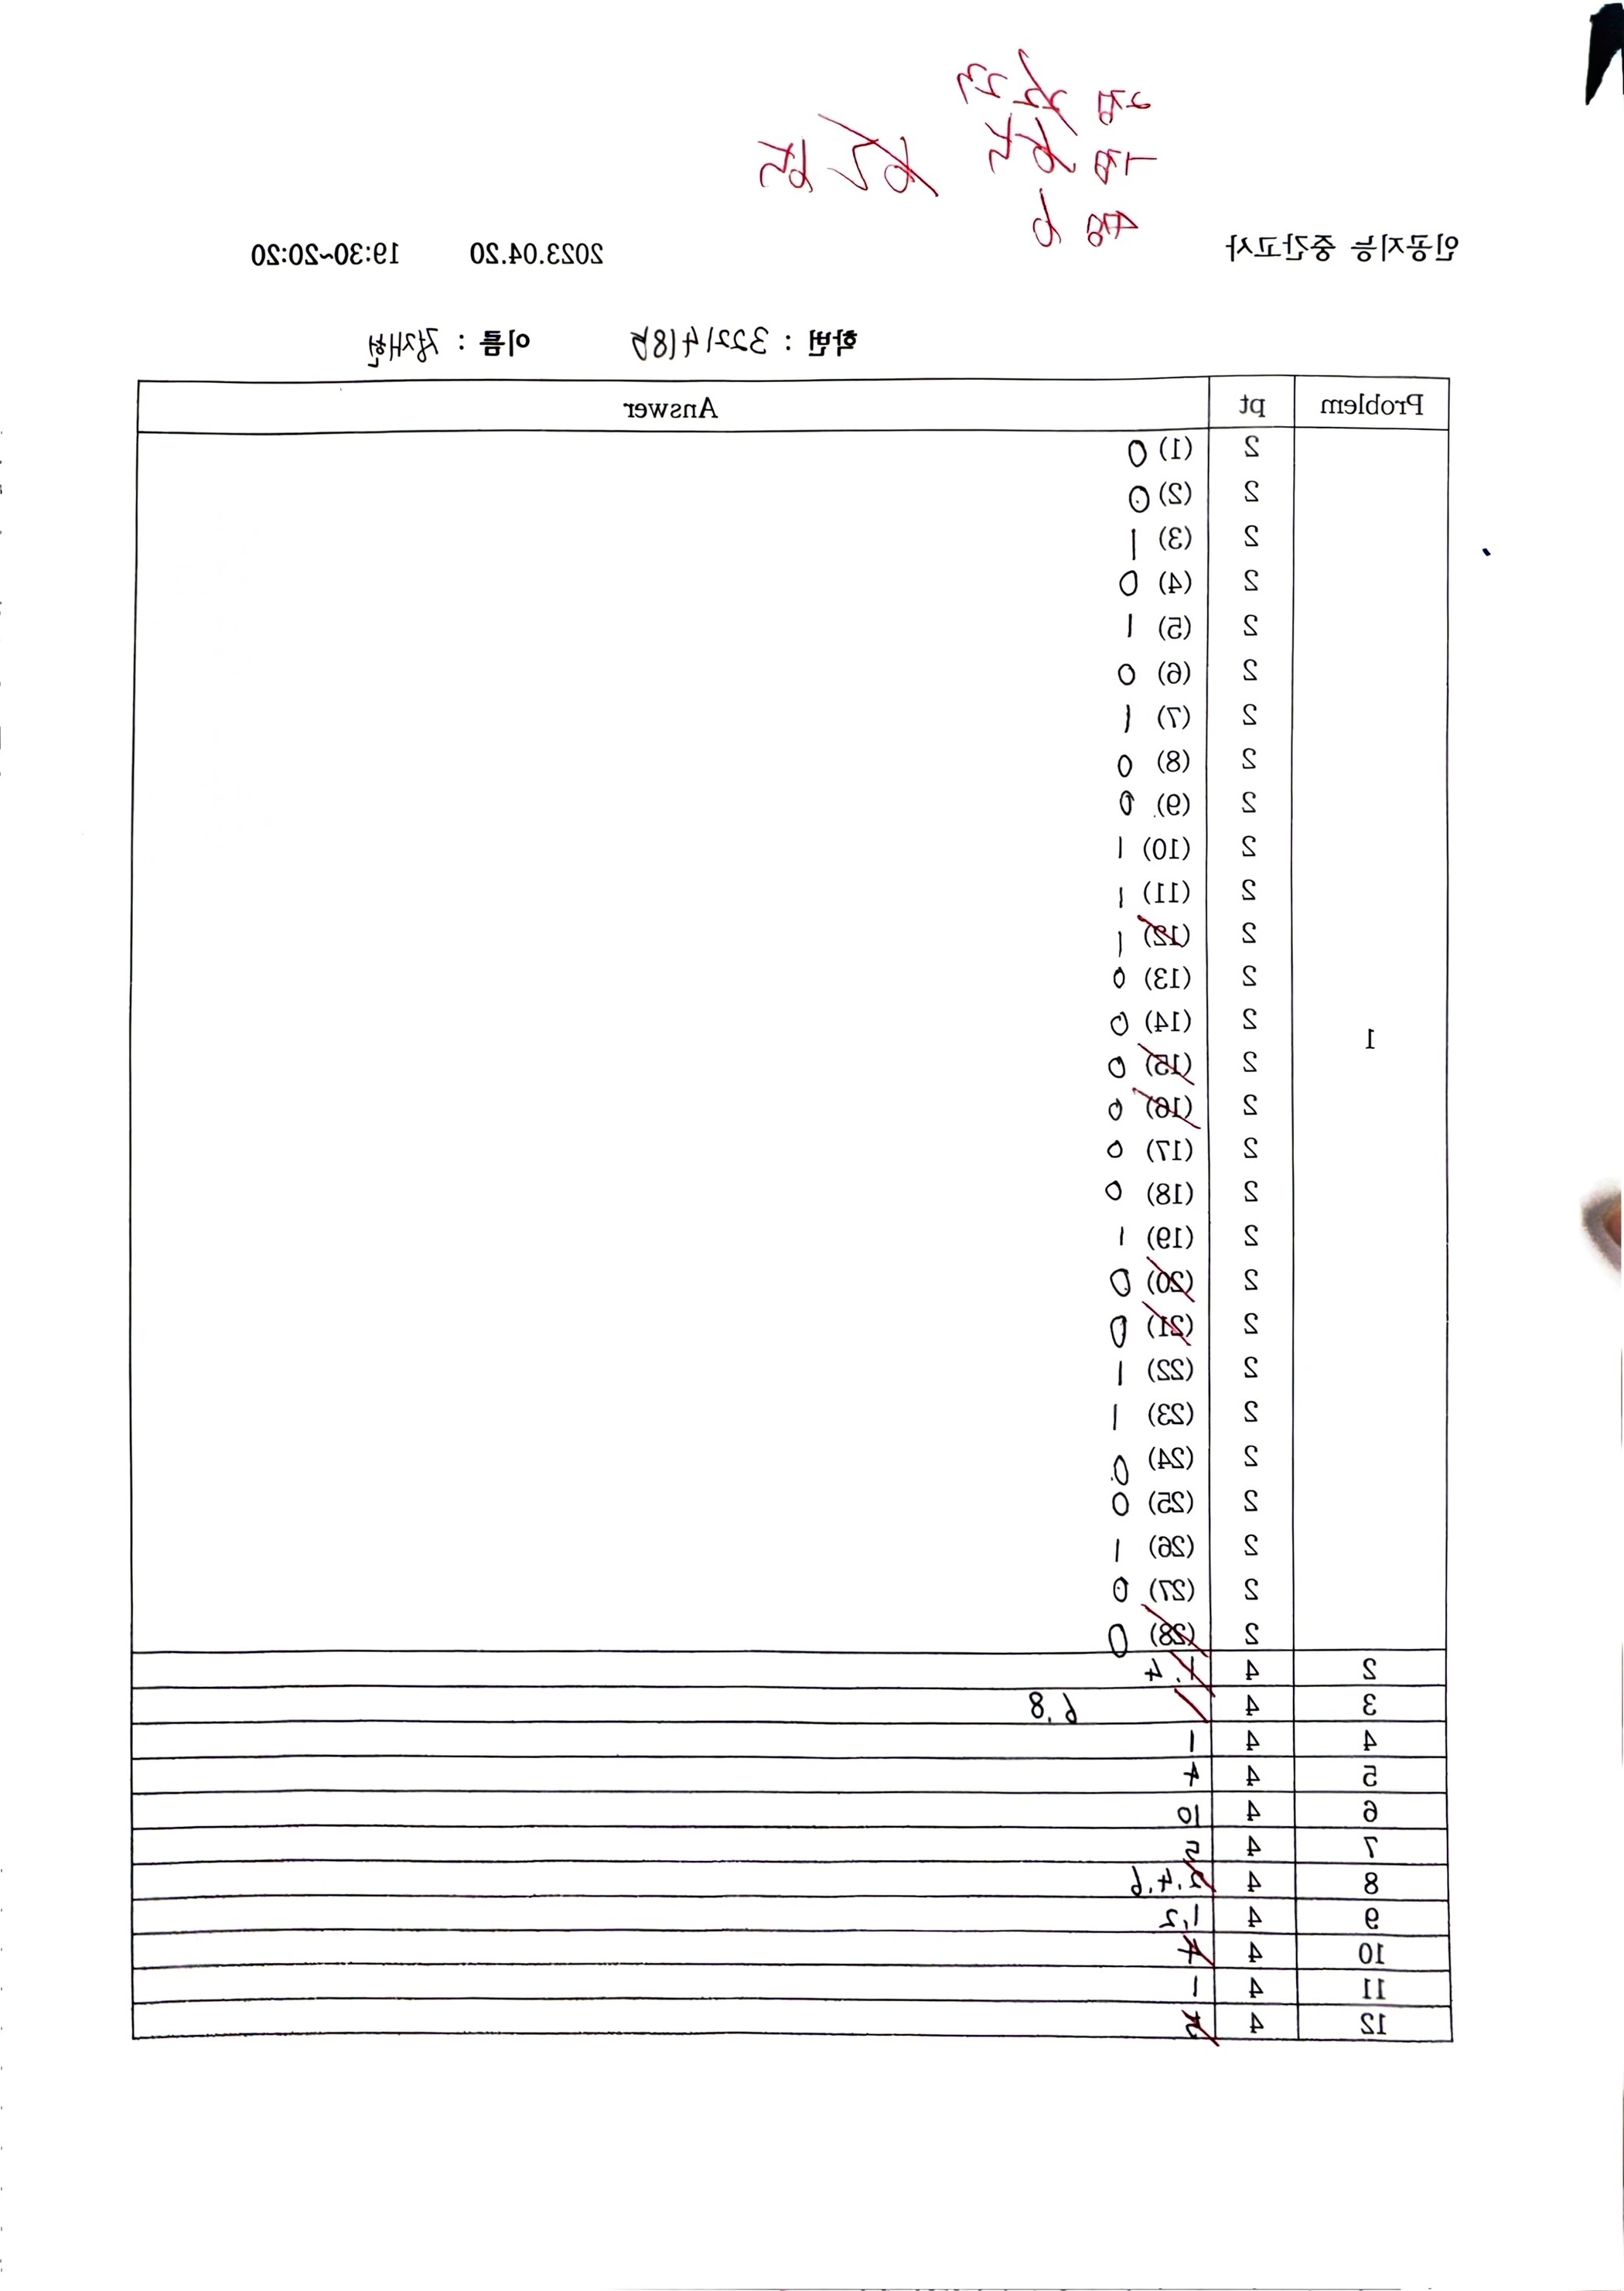 2점 23
1점
4점 6
65
인공지능 중간고사 2023.04.20 19:30~20:20
학번 : 32214185 이름 : 정재현
Problem pt Answer
1
2 (1) 0
2 (2) 0
2 (3) 1
2 (4) 0
2 (5) 1
2 (6) 0
2 (7) 1
2 (8) 0
2 (9) 0
2 (10) 1
2 (11) 1
2 (12) 1
2 (13) 0
2 (14) 0
2 (15) 0
2 (16) 0
2 (17) 0
2 (18) 0
2 (19) 1
2 (20) 0
2 (21) 0
2 (22) 1
2 (23) 1
2 (24) 0
2 (25) 0
2 (26) 1
2 (27) 0
2 (28) 0
2 4 1. 4
3 4 6.8
4 4 1
5 4 4
6 4 10
7 4 5
8 4 2.4.6
9 4 1,2
10 4 4
11 4 1
12 4